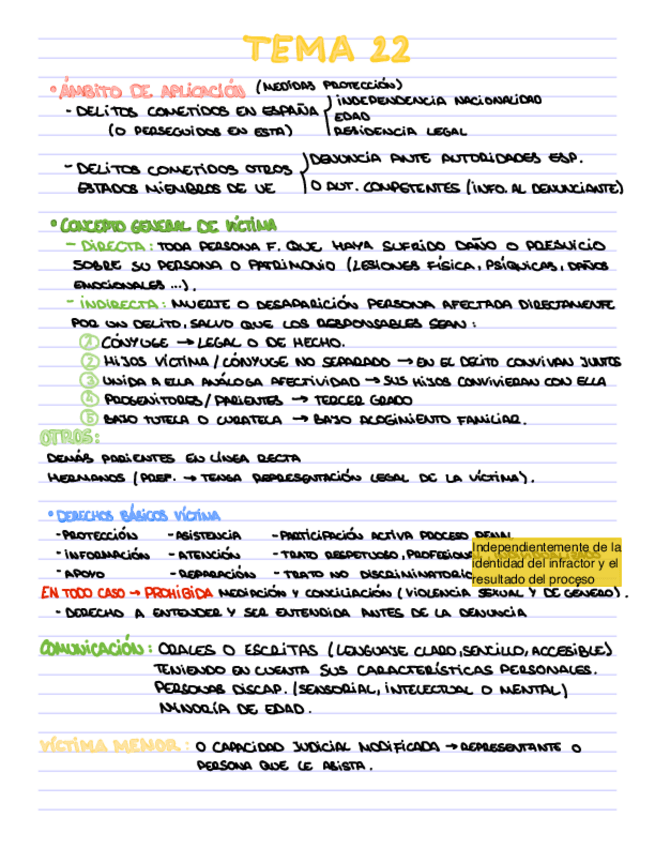 TEMA 22
• ÁMBITO DE APLICACIÓN (MEDIDAS PROTECCIÓN)
- DELITOS COMETIDOS EN ESPAÑA
(O PERSEGUIDOS EN ESTA)
INDEPENDENCIA NACIONALIDAD
EDAD
RESIDENCIA LEGAL
- DELITOS COMETIDOS OTROS
ESTADOS MIEMBROS DE UE
DENUNCIA ANTE AUTORIDADES ESP.
O AUT. COMPETENTES (INFO. AL DENUNCIANTE)
• CONCEPTO GENERAL DE VÍCTIMA
- DIRECTA: TODA PERSONA F. QUE HAYA SUFRIDO DAÑO O PREJUICIO
SOBRE SU PERSONA O PATRIMONIO (LESIONES FÍSICA, PSÍQUICAS, DAÑOS
EMOCIONALES ...).
- INDIRECTA: MUERTE O DESAPARICIÓN PERSONA AFECTADA DIRECTAMENTE
POR UN DELITO, SALVO QUE LOS RESPONSABLES SEAN:
1 CÓNYUGE → LEGAL O DE HECHO.
2 HIJOS VÍCTIMA / CÓNYUGE NO SEPARADO → EN EL DELITO CONVIVAN JUNTOS
3 UNIDA A ELLA ANÁLOGA AFECTIVIDAD → SUS HIJOS CONVIVIERAN CON ELLA
4 PROGENITORES / PARIENTES → TERCER GRADO
5 BAJO TUTELA O CURATELA → BAJO ACOGIMIENTO FAMILIAR.
OTROS:
DEMÁS PARIENTES EN LÍNEA RECTA
HERMANOS (PREF. → TENGA REPRESENTACIÓN LEGAL DE LA VÍCTIMA).
• DERECHOS BÁSICOS VÍCTIMA
- PROTECCIÓN - ASISTENCIA - PARTICIPACIÓN ACTIVA PROCESO PENAL
- INFORMACIÓN - ATENCIÓN - TRATO RESPETUOSO, PROFESIONAL
- APOYO - REPARACIÓN - TRATO NO DISCRIMINATORIO
Independientemente de la
identidad del infractor y el
resultado del proceso
EN TODO CASO → PROHIBIDA MEDIACIÓN Y CONCILIACIÓN (VIOLENCIA SEXUAL Y DE GÉNERO).
- DERECHO A ENTENDER Y SER ENTENDIDA ANTES DE LA DENUNCIA
COMUNICACIÓN: ORALES O ESCRITAS (LENGUAJE CLARO, SENCILLO, ACCESIBLE)
TENIENDO EN CUENTA SUS CARACTERÍSTICAS PERSONALES.
PERSONAS DISCAP. (SENSORIAL, INTELECTUAL O MENTAL)
MINORÍA DE EDAD.
VÍCTIMA MENOR: O CAPACIDAD JUDICIAL MODIFICADA → REPRESENTANTE O
PERSONA QUE LE ASISTA.